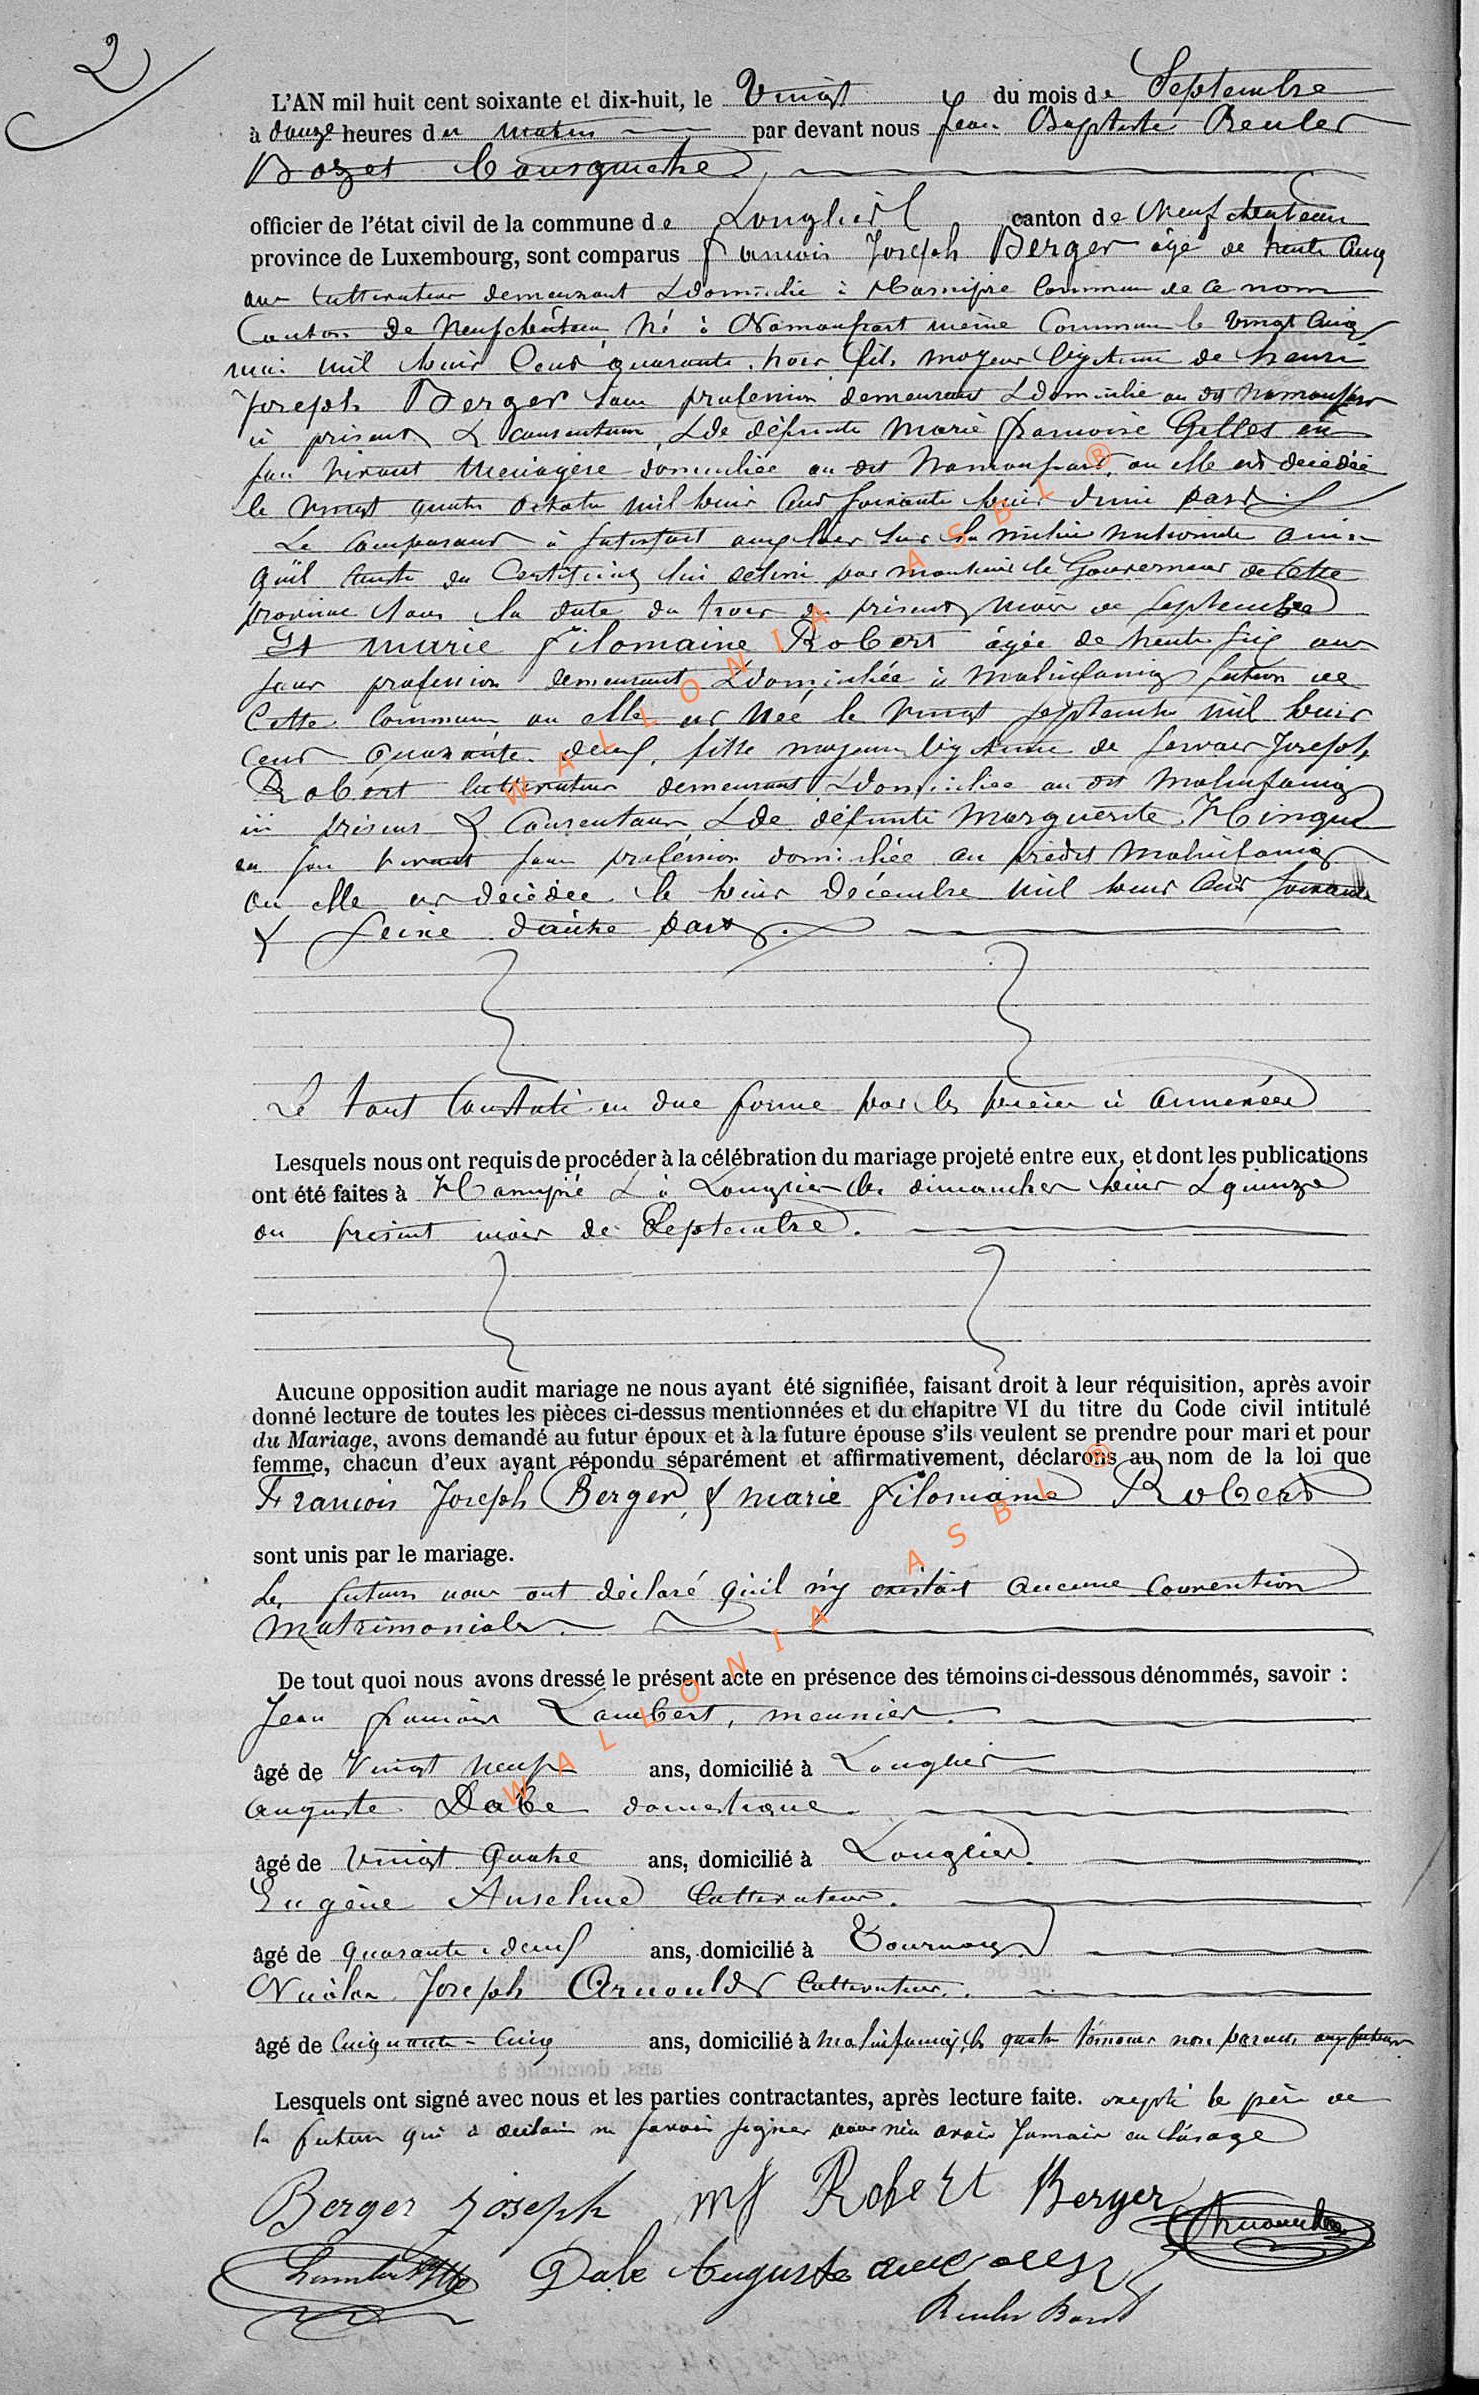 2
L'AN mil huit cent soixante et dix-huit, le Vingt du mois de Septembre
à douze heures du matin par devant nous Jean Baptiste Reuler
Bozet Bourgmestre
officier de l'état civil de la commune de Longlier canton de Neufchateau
province de Luxembourg, sont comparus françois Joseph Berger âgé de trente Cinq
ans Cultivateur demeurant & domicilié à Hamipré Commune de ce nom
Canton de Neufchâteau Né à Namoussart même Commune le Vingt Cinq
mai mil huit Cent quarante trois fils majeur légitime de henri
joseph Berger sans profession demeurant & domicilié au dit Namoussart
ici présent & consentant, & de défunte Marie françoise Gillet en
son vivant Ménagère domiciliée au dit Namoussart, ou elle est décédée
le vingt quatre octobre mil huit Cent soixante huit d'une part.
Le Comparant à satisfait aux lois sur la milice nationale ainsi
qu'il Conste du Certificat lui délivré par monsieur le Gouverneur de Cette
province sous la date du trois du présent Mois de Septembre
Et marie filomaine Robert âgée de trente six ans
sans profession demeurant & domiciliée à Malinfaing section de
Cette Commune ou elle est Née le Vingt septembre mil huit
Cent Quarante deux, fille majeure légitime de servais Joseph
Robert Cultivateur demeurant & domicilié au dit Malinfaing
ici présent & Consentant, & de défunte Marguerite Hinque
en son vivant sans profession domiciliée au prédit Malinfaing
ou elle est décédée le huit Décembre mil huit Cent soixante
& seize d'autre part.
Le tout Constaté en due forme par les pièces ci annexées
Lesquels nous ont requis de procéder à la célébration du mariage projeté entre eux, et dont les publications
ont été faites à Hamipré & à Longlier les dimanches huit & quinze
du présent mois de Septembre.
Aucune opposition audit mariage ne nous ayant été signifiée, faisant droit à leur réquisition, après avoir
donné lecture de toutes les pièces ci-dessus mentionnées et du chapitre VI du titre du Code civil intitulé
du Mariage, avons demandé au futur époux et à la future épouse s'ils veulent se prendre pour mari et pour
femme, chacun d'eux ayant répondu séparément et affirmativement, déclarons au nom de la loi que
François Joseph Berger, & marie filomaine Robert
sont unis par le mariage.
Les futurs nous ont déclaré qu'il n'y existait aucune Convention
Matrimoniale.
De tout quoi nous avons dressé le présent acte en présence des témoins ci-dessous dénommés, savoir :
Jean françois Lambert, meunier.
âgé de Vingt neuf ans, domicilié à Longlier
Auguste Dabe domestique.
âgé de Vingt Quatre ans, domicilié à Longlier.
Eugène Anselme Cultivateur.
âgé de quarante deux ans, domicilié à Tournay.
Nicolas Joseph Arnould Cultivateur.
âgé de Cinquante Cinq ans, domicilié à Malinfaing, les quatre témoins non parents aux futurs.
Lesquels ont signé avec nous et les parties contractantes, après lecture faite. excepté le père de
la future qui a déclaré ne savoir signer pour n'en avoir Jamais eu l'usage
Berger Joseph mf Robert Berger Arnould
Lambert Dabe Auguste
Reuler Bozet
WALLONIA ASBL ®
WALLONIA ASBL ®